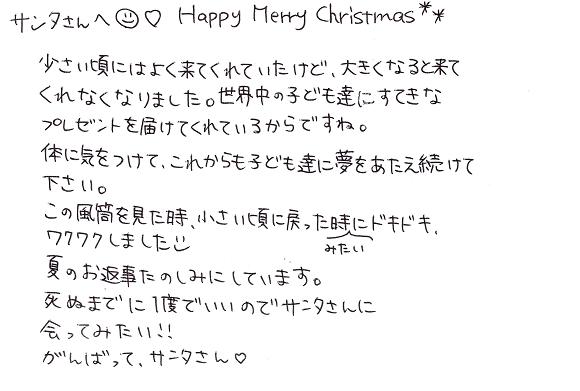 サンタさんへ☺♡ Happy Merry Christmas**
少さい頃にはよく来てくれていたけど、大きくなると来て
くれなくなりました。世界中の子ども達にすてきな
プレゼントを届けてくれているからですね。
体に気をつけて、これからも子ども達に夢をあたえ続けて
下さい。
この風筒を見た時、小さい頃に戻った時にドキドキ、
みたい
ワクワクしました☺
夏のお返事たのしみにしています。
死ぬまでに1度でいいのでサンタさんに
会ってみたい!!
がんばって、サンタさん♡